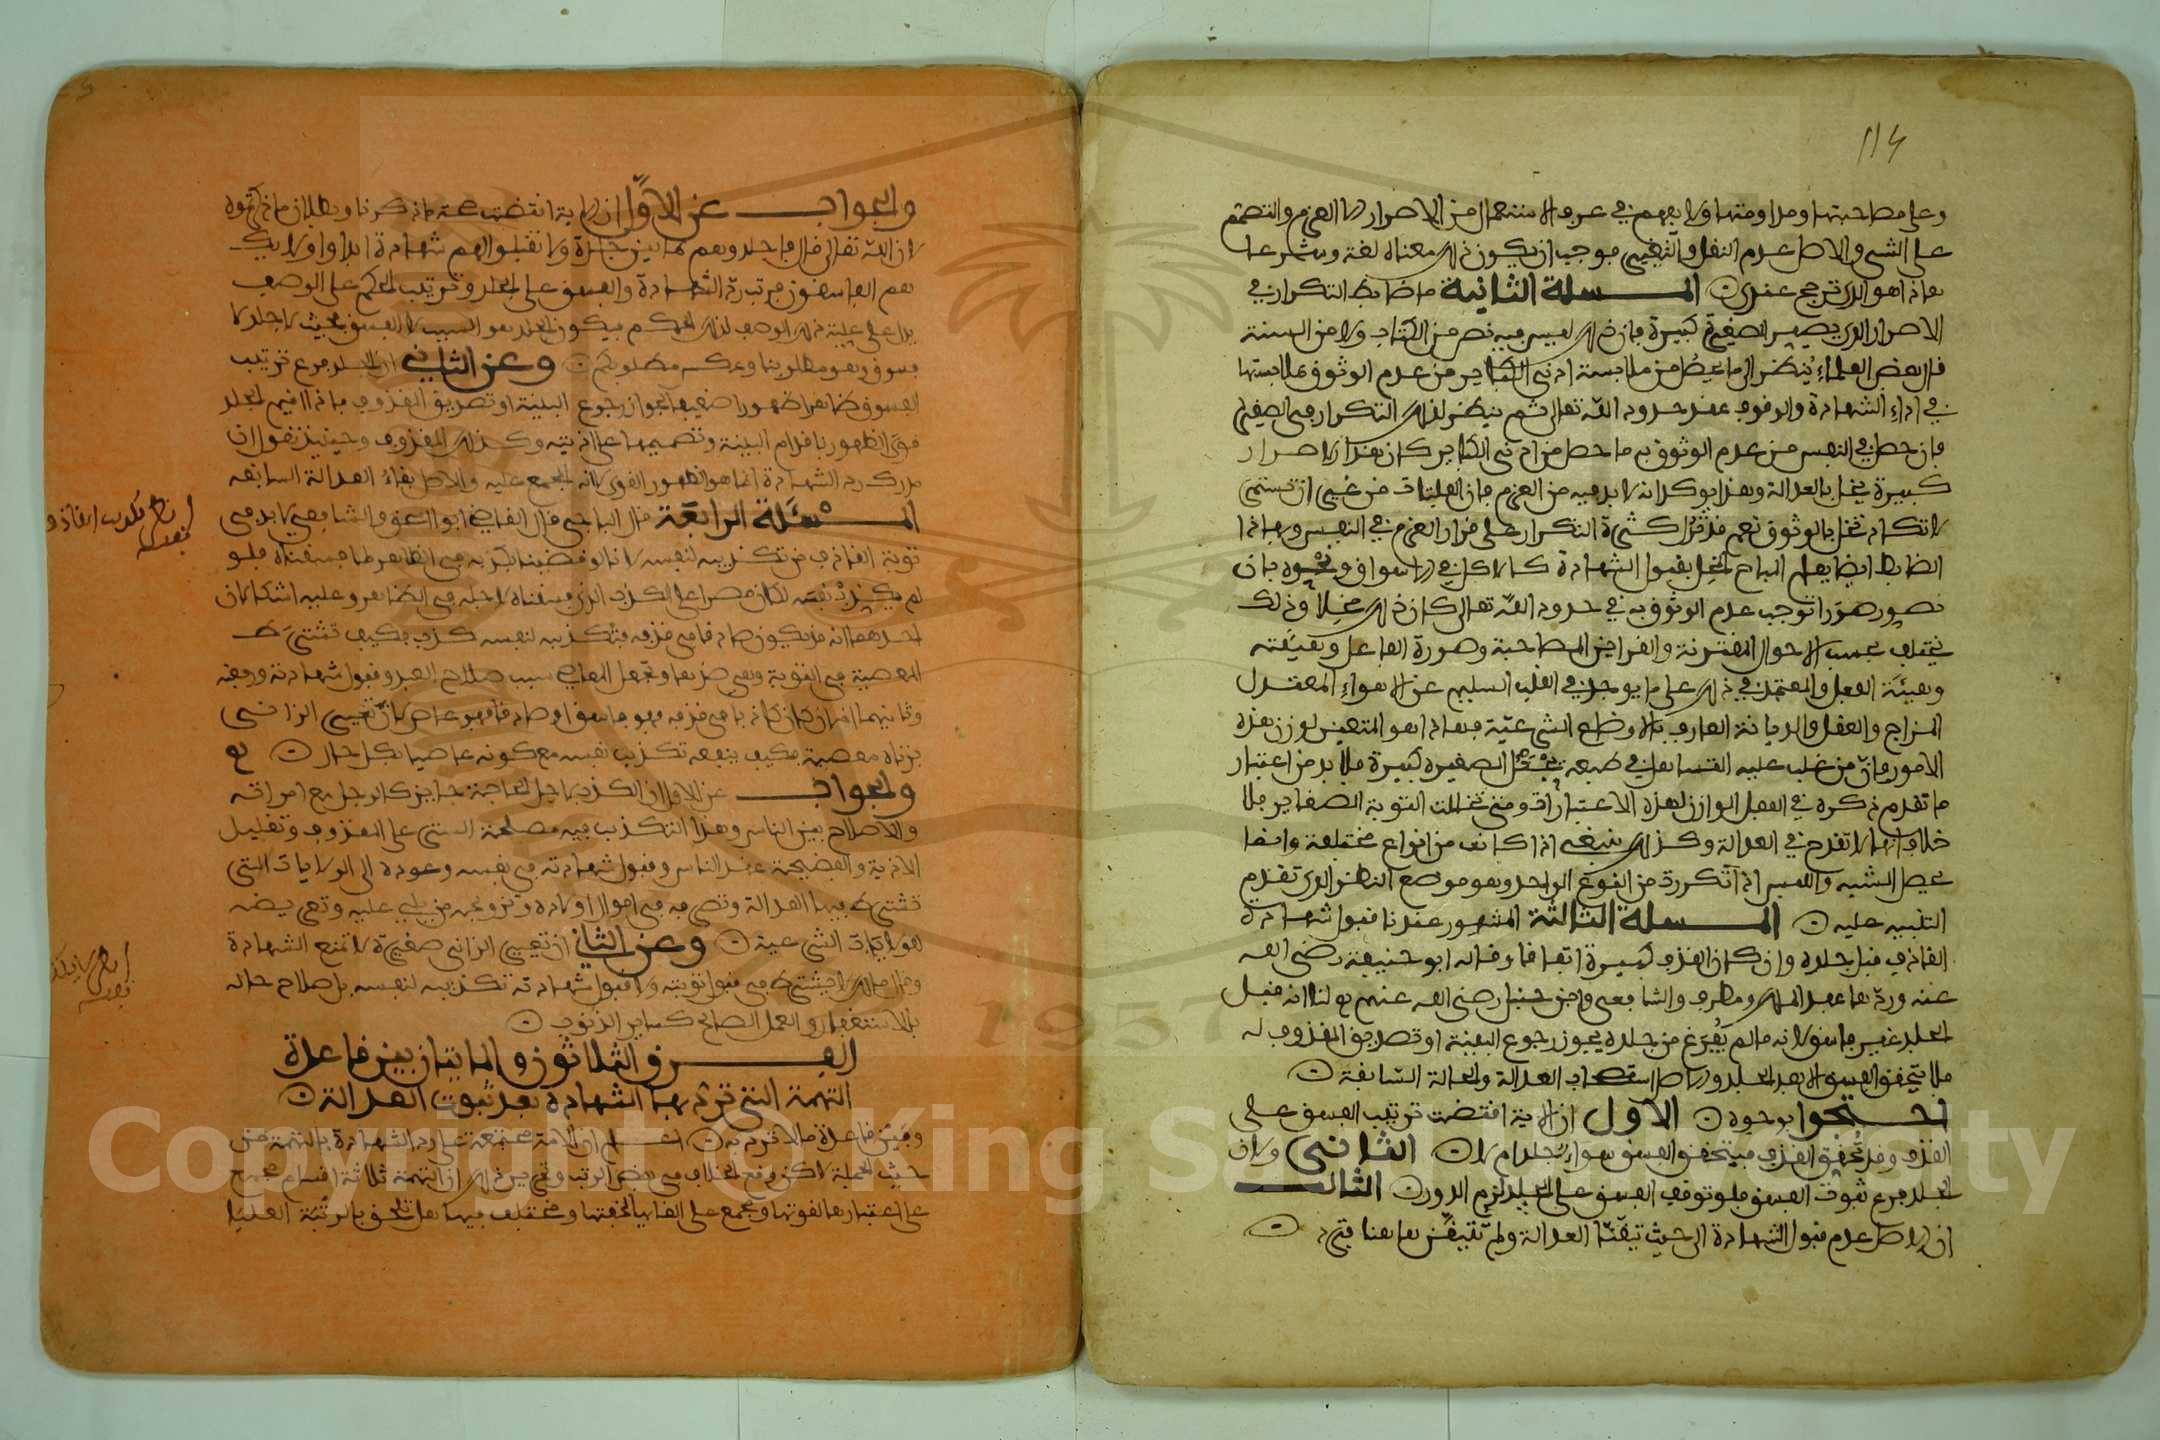 114
وعلى مصاحبتها ومداومتها ولا يفهم في عرف الاستعمال من الاصرار الا العزم والتصميم
على الشي والاصل عدم النقل والتغيير فوجب ان يكون ذلك معناه لغة وشرعا
هذا هو الذي ترجح عندي
المسلة الثانية ما ضابط التكرار في
الاصرار الذي يصير الصغيرة كبيرة فان ذلك ليس فيه نص من الكتاب ولا من السنة
قال بعض العلماء ينظر الى ما يحصل من ملابسة ادنى الكباير من عدم الوثوق بملابستها
في اداء الشهادة والوقوف عند حدود الله تعالى ثم ينظر لذلك التكرار في الصغيرة
فان حصل في النفس من عدم الوثوق به ما حصل من ادنى الكباير كان هذا الاصرار
كبيرة يخل بالعدالة وهذا يوكد انه لا بد فيه من العزم فان الفلتات من غير ان تستمر
لا تكاد تخل بالوثوق نعم قد تدل كثرة التكرار على قرار العزم في النفس وبهذا
الضابط ايضا يعلم المباح المخل بقبول الشهادة كالاكل في الاسواق ونحوه فان
صدر صدورا توجب عدم الوثوق به في حدود الله تعالى كان ذلك مخلا وذلك
يختلف بحسب الاحوال المقترنة والقراين المصاحبة وصورة الفاعل وهيئته
وهيئة الفعل والمعتمد في ذلك على ما يوجد في القلب السليم عن الاهواء المعتدل
المزاج والعقل والديانة العارف بالاوضاع الشرعية فهذا هو المتعين لوزن هذه
الامور فان من غلب عليه التساهل في طبعه يعد الصغيرة كبيرة فلا بد من اعتبار
ما تقدم ذكره في العقل الوازن لهذه الاعتبارات ومتى تخللت التوبة الصغاير فلا
خلاف انها لا تقدح في العدالة وكذلك ينبغي اذا كانت من انواع مختلفة وانما
يحصل الشبه واللبس اذا تكررت من النوع الواحد وهو موضع النظر الذي تقدم
التنبيه عليه المسلة الثالثة المشهور عندنا قبول شهادة
القاذف قبل جلده وان كان القذف كبيرة اتفاقا وقاله ابو حنيفة رضي الله
عنه وردها عبد الملك ومطرف والشافعي وابن حنبل رضي الله عنهم لنا انه قبل
الجلد غير فاسق لانه ما لم يفرغ من جلده يجوز رجوع البينة او تصديق المقذوف له
فلا يتحقق الفسق الا بعد الجلد والاصل استصحاب العدالة والحالة السابقة
احتجوا بوجوه الاول ان الاية اقتضت ترتيب الفسق على
القذف وقد تحقق القذف فيتحقق الفسق سواء جلد ام لا الثاني ولان
الجلد فرع ثبوت الفسق فلو توقف الفسق على الجلد لزم الدور الثالث
ان الاصل عدم قبول الشهادة الا حيث تيقنا العدالة ولم تتيقن هاهنا فترد
والجواب عن الاول ان الاية اقتضت صحة ما ذكرنا وبطلان ما ذكرتموه
لان الله تعالى قال فاجلدوهم ثمانين جلدة ولا تقبلوا لهم شهادة ابدا واوليك
هم الفاسقون فرتب رد الشهادة والفسق على الجلد وترتيب الحكم على الوصف
يدل على علية ذلك الوصف لذلك الحكم فيكون الجلد هو السبب للفسق فحيث لا جلد لا
فسوق وهو مطلوبنا وعكس مطلوبكم وعن الثاني ان الجلد فرع ترتيب
الفسوق ظاهرا ظهورا ضعيفا لجواز رجوع البينة او تصديق المقذوف فاذا اقيم الجلد
قوي الظهور باقدام البينة وتصميمها على اذيته وكذلك المقذوف وحينيذ نقول ان
مدرك رد الشهادة انما هو الظهور القوي لانه المجمع عليه والاصل بقاء العدالة السابقة
المسئلة الرابعة قال الباجي قال القاضي ابو اسحق والشافعي لا بد في
توبة القاذف من تكذيبه لنفسه لانا لو قضينا بكذبه في الظاهر لما فسقناه فلو
لم يكذب نفسه لكان مصرا على الكذب الذي فسقناه لاجله في الظاهر وعليه اشكالان
احدهما انه قد يكون صادقا في قذفه فتكذيبه لنفسه كذب فكيف تشترط
المعصية في التوبة وهي ضدها وتجعل المعاصي سبب صلاح العبد وقبول شهادته ورفعته
وثانيهما انه ان كان كاذبا في قذفه فهو فاسق او صادقا فهو عاص لان تعيير الزاني
بزناه معصية فكيف ينفعه تكذيب نفسه مع كونه عاصيا بكل حال
والجواب عن الاول ان الكذب لاجل الحاجة جايز كالرجل مع امراته
والاصلاح بين الناس وهذا التكذيب فيه مصلحة الستر على المقذوف وتقليل
الاذية والفضيحة عند الناس وقبول شهادته في نفسه وعوده الى الولايات التي
تشترط فيها العدالة وتصرفه في اموال اولاده وتزويجه من يلي عليه وتعرضه
للولايات الشرعية وعن الثاني ان تعيير الزاني صغيرة لا تمنع الشهادة
وقال مالك لا يشترط في قبول توبته ولا قبول شهادته تكذيبه لنفسه بل صلاح حاله
بالاستغفار والعمل الصالح كساير الذنوب
الفرق الثلاثون والمايتان بين قاعدة
التهمة التي ترد بها الشهادة بعد ثبوت العدالة
وبين قاعدة ما لا ترد به اعلم ان الامة مجتمعة على رد الشهادة بالتهمة من
حيث الجملة لكن وقع الخلاف في بعض الرتب وتحرير ذلك ان التهمة ثلاثة اقسام مجمع
على اعتبارها لقوتها ومجمع على الغايها لخفتها ومختلف فيها هل تلحق بالرتبة العليا